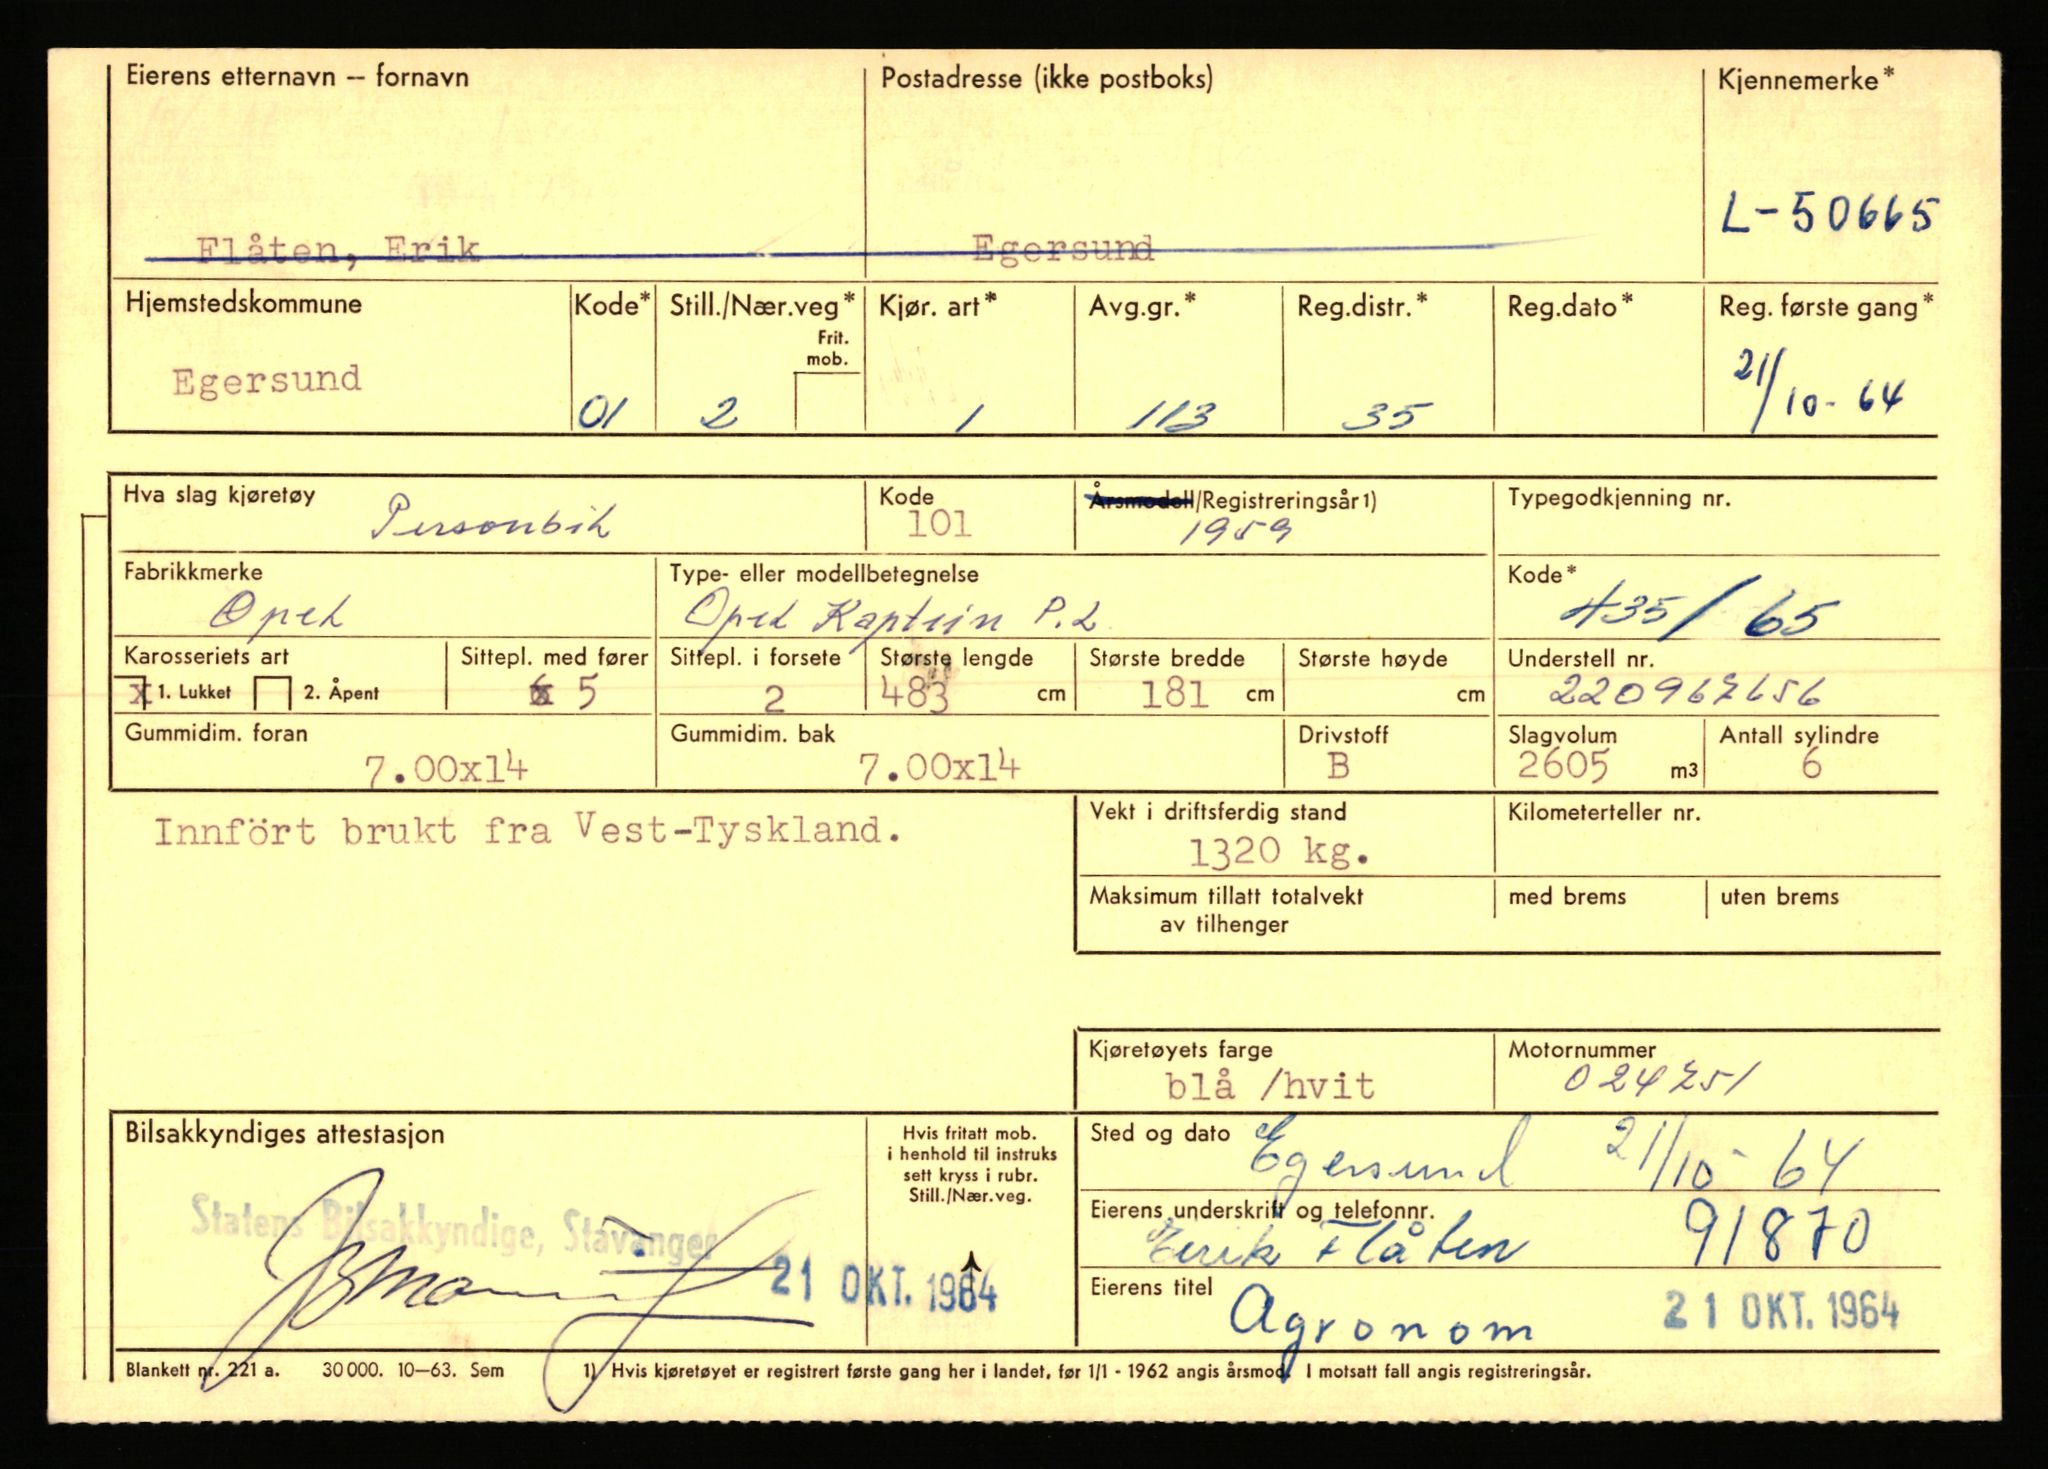 Eierens etternavn -- fornavn Postadresse (ikke postboks) Kjennemerke*
L-50665
Flåten, Erik Egersund
Hjemstedskommune Kode* Still./Nær.veg* Kjør. art* Avg.gr.* Reg.distr.* Reg.dato* Reg. første gang*
Frit.
mob.
Egersund 01 2 1 113 35 21/10-64
Hva slag kjøretøy Kode Årsmodell/Registreringsår1) Typegodkjenning nr.
Personbil 101 1959
Fabrikkmerke Type- eller modellbetegnelse Kode*
Opel Opel Kaptein P.2 435/65
Karosseriets art Sittepl. med fører Sittepl. i forsete Største lengde Største bredde Største høyde Understell nr.
x 1. Lukket 2. Åpent 5 2 483 cm 181 cm cm 220967656
Gummidim. foran Gummidim. bak Drivstoff Slagvolum Antall sylindre
7.00x14 7.00x14 B 2605 m3 6
Innfört brukt fra Vest-Tyskland.
Vekt i driftsferdig stand Kilometerteller nr.
1320 kg.
Maksimum tillatt totalvekt med brems uten brems
av tilhenger
Kjøretøyets farge Motornummer
blå /hvit 024751
Bilsakkyndiges attestasjon
Hvis fritatt mob.
i henhold til instruks
sett kryss i rubr.
Still./Nær.veg.
Sted og dato Egersund 21/10-64
Statens Bilsakkyndige, Stavanger
21 OKT. 1964
Eierens underskrift og telefonnr.
Erik Flåten 91870
Eierens titel
Agronom 21 OKT. 1964
Blankett nr. 221 a. 30 000. 10—63. Sem 1) Hvis kjøretøyet er registrert første gang her i landet, før 1/1 - 1962 angis årsmod. I motsatt fall angis registreringsår.